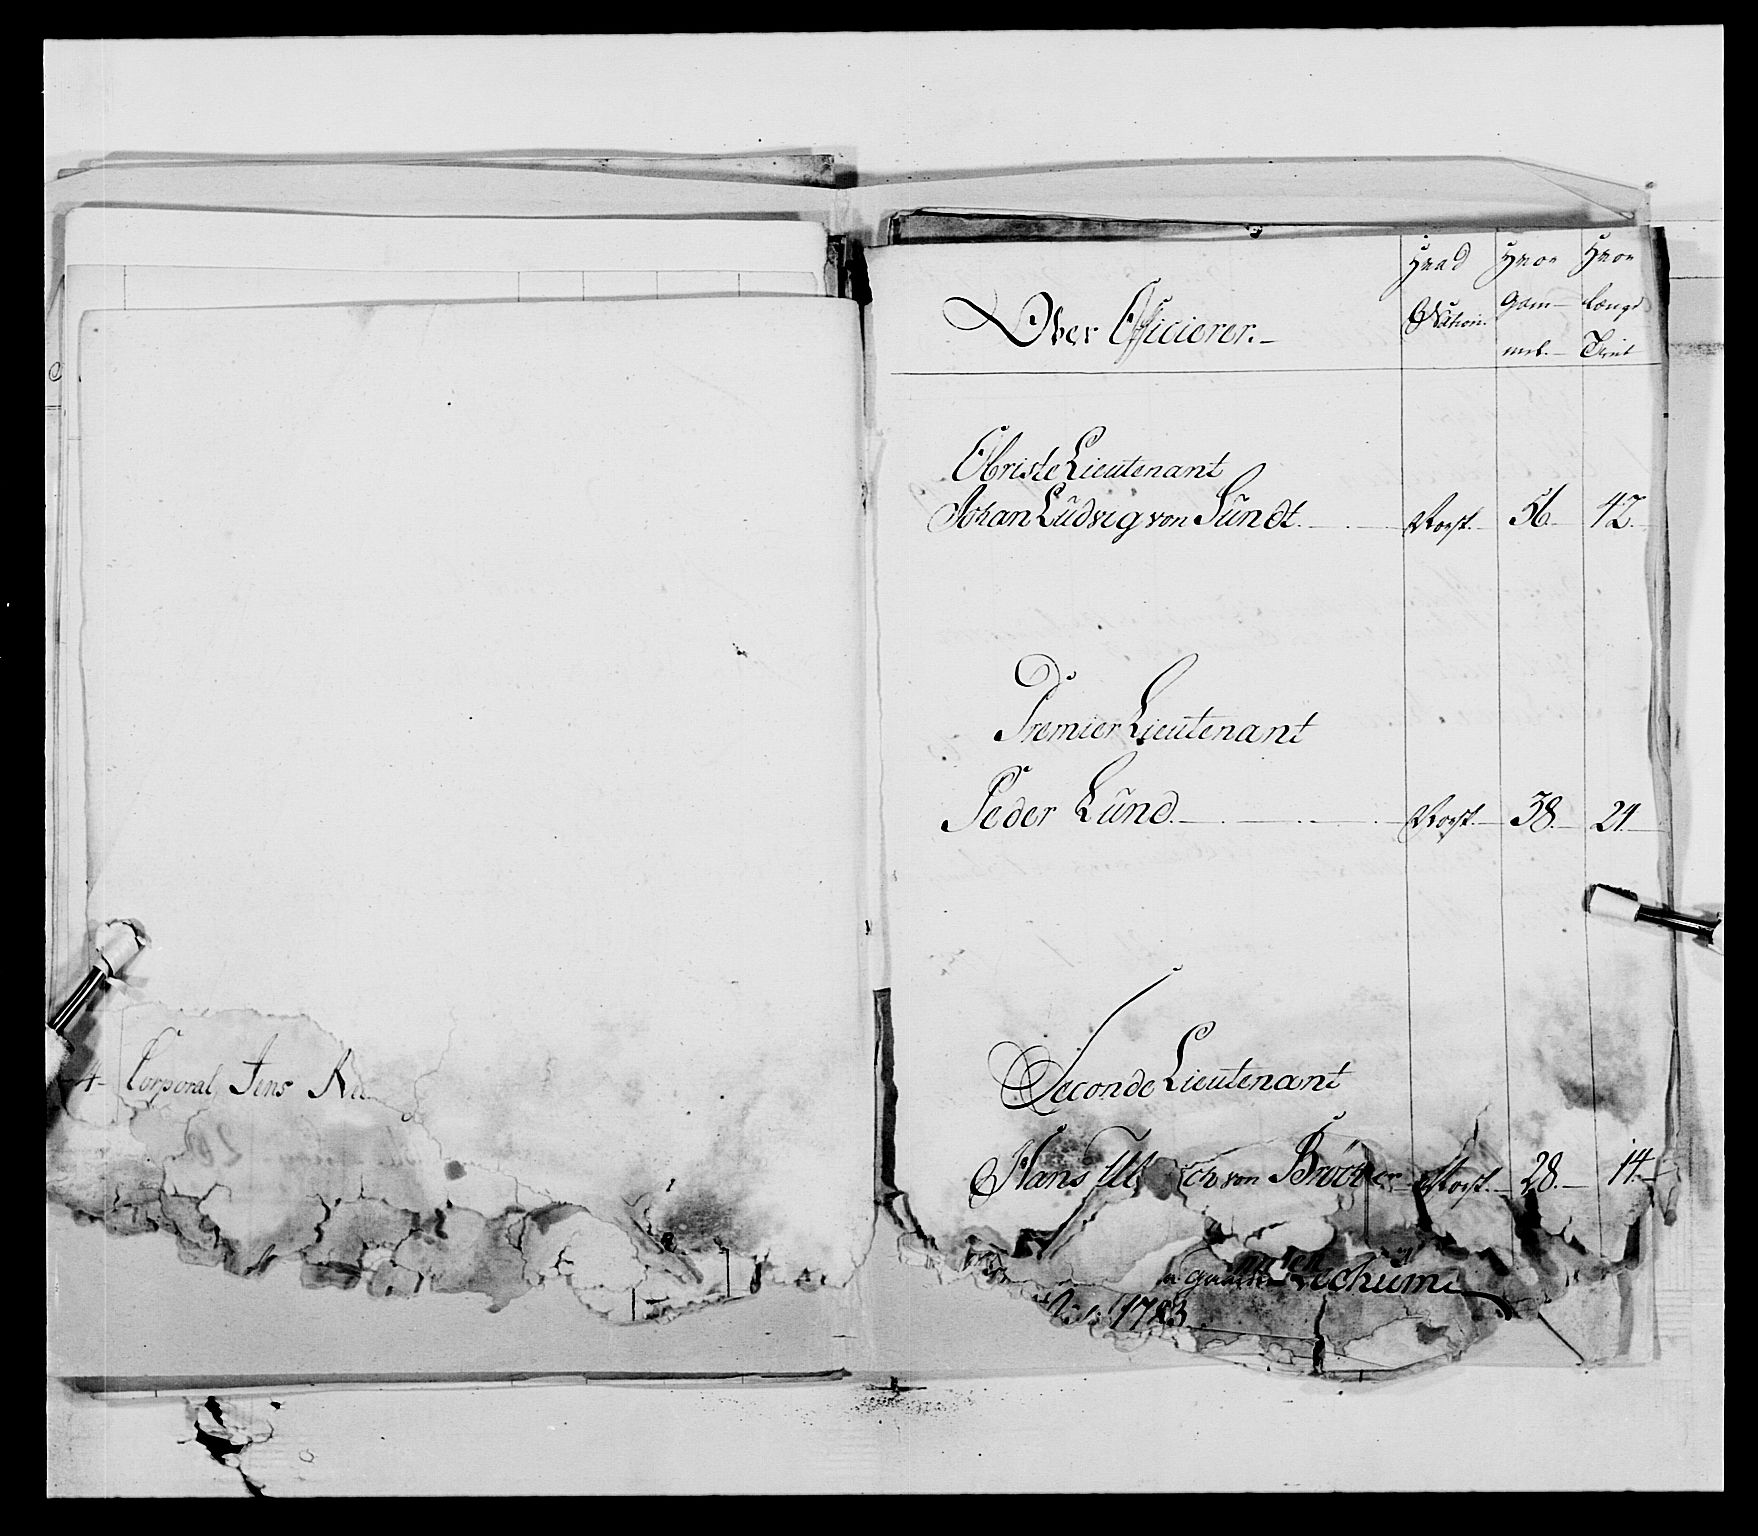 4. Corporal Jens
Over Officierer.
Hvad Nation.
Hvor Gam-mel.
Hvor længe Tient
Obriste Lieutenant
Johan Ludvig von Sundt. Norsk. 56. 42.
Premier Lieutenant
Peder Lund. Norsk. 38. 21.
Seconde Lieutenant
Hans von Brøcker Norsk. 28. 14.
1783